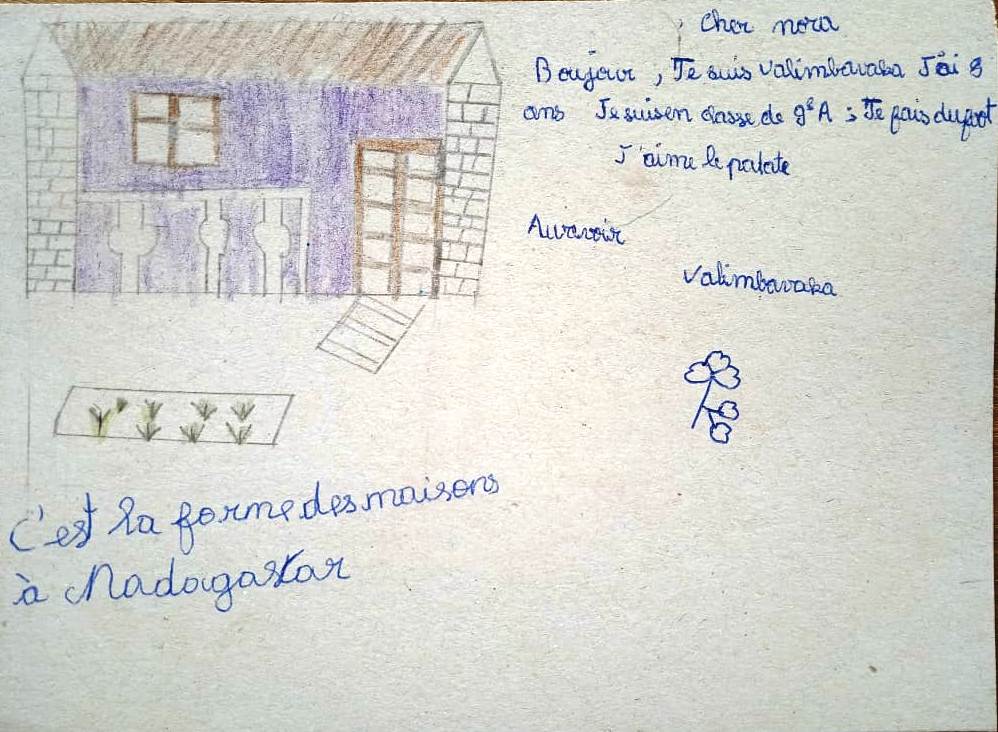 Cher nora
Boujour , Je suis Valimbavaka J'ai 8
ans Je suis en classe de 9e A ; Je fais du foot
J'aime le patate
Auravoir
Valimbavaka
C'est la forme des maisons
à Madagaskar